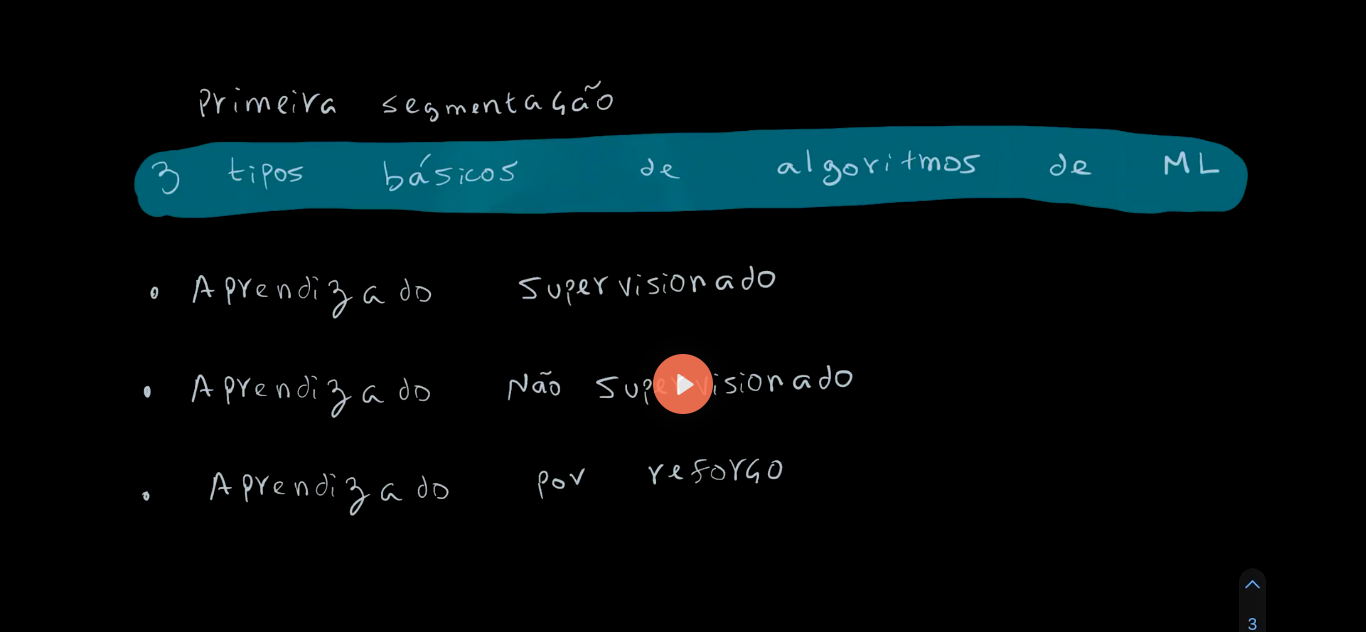 Primeira segmentação
3 tipos básicos de algoritmos de ML
• Aprendizado Supervisionado
• Aprendizado Não Supervisionado
• Aprendizado por reforço
3